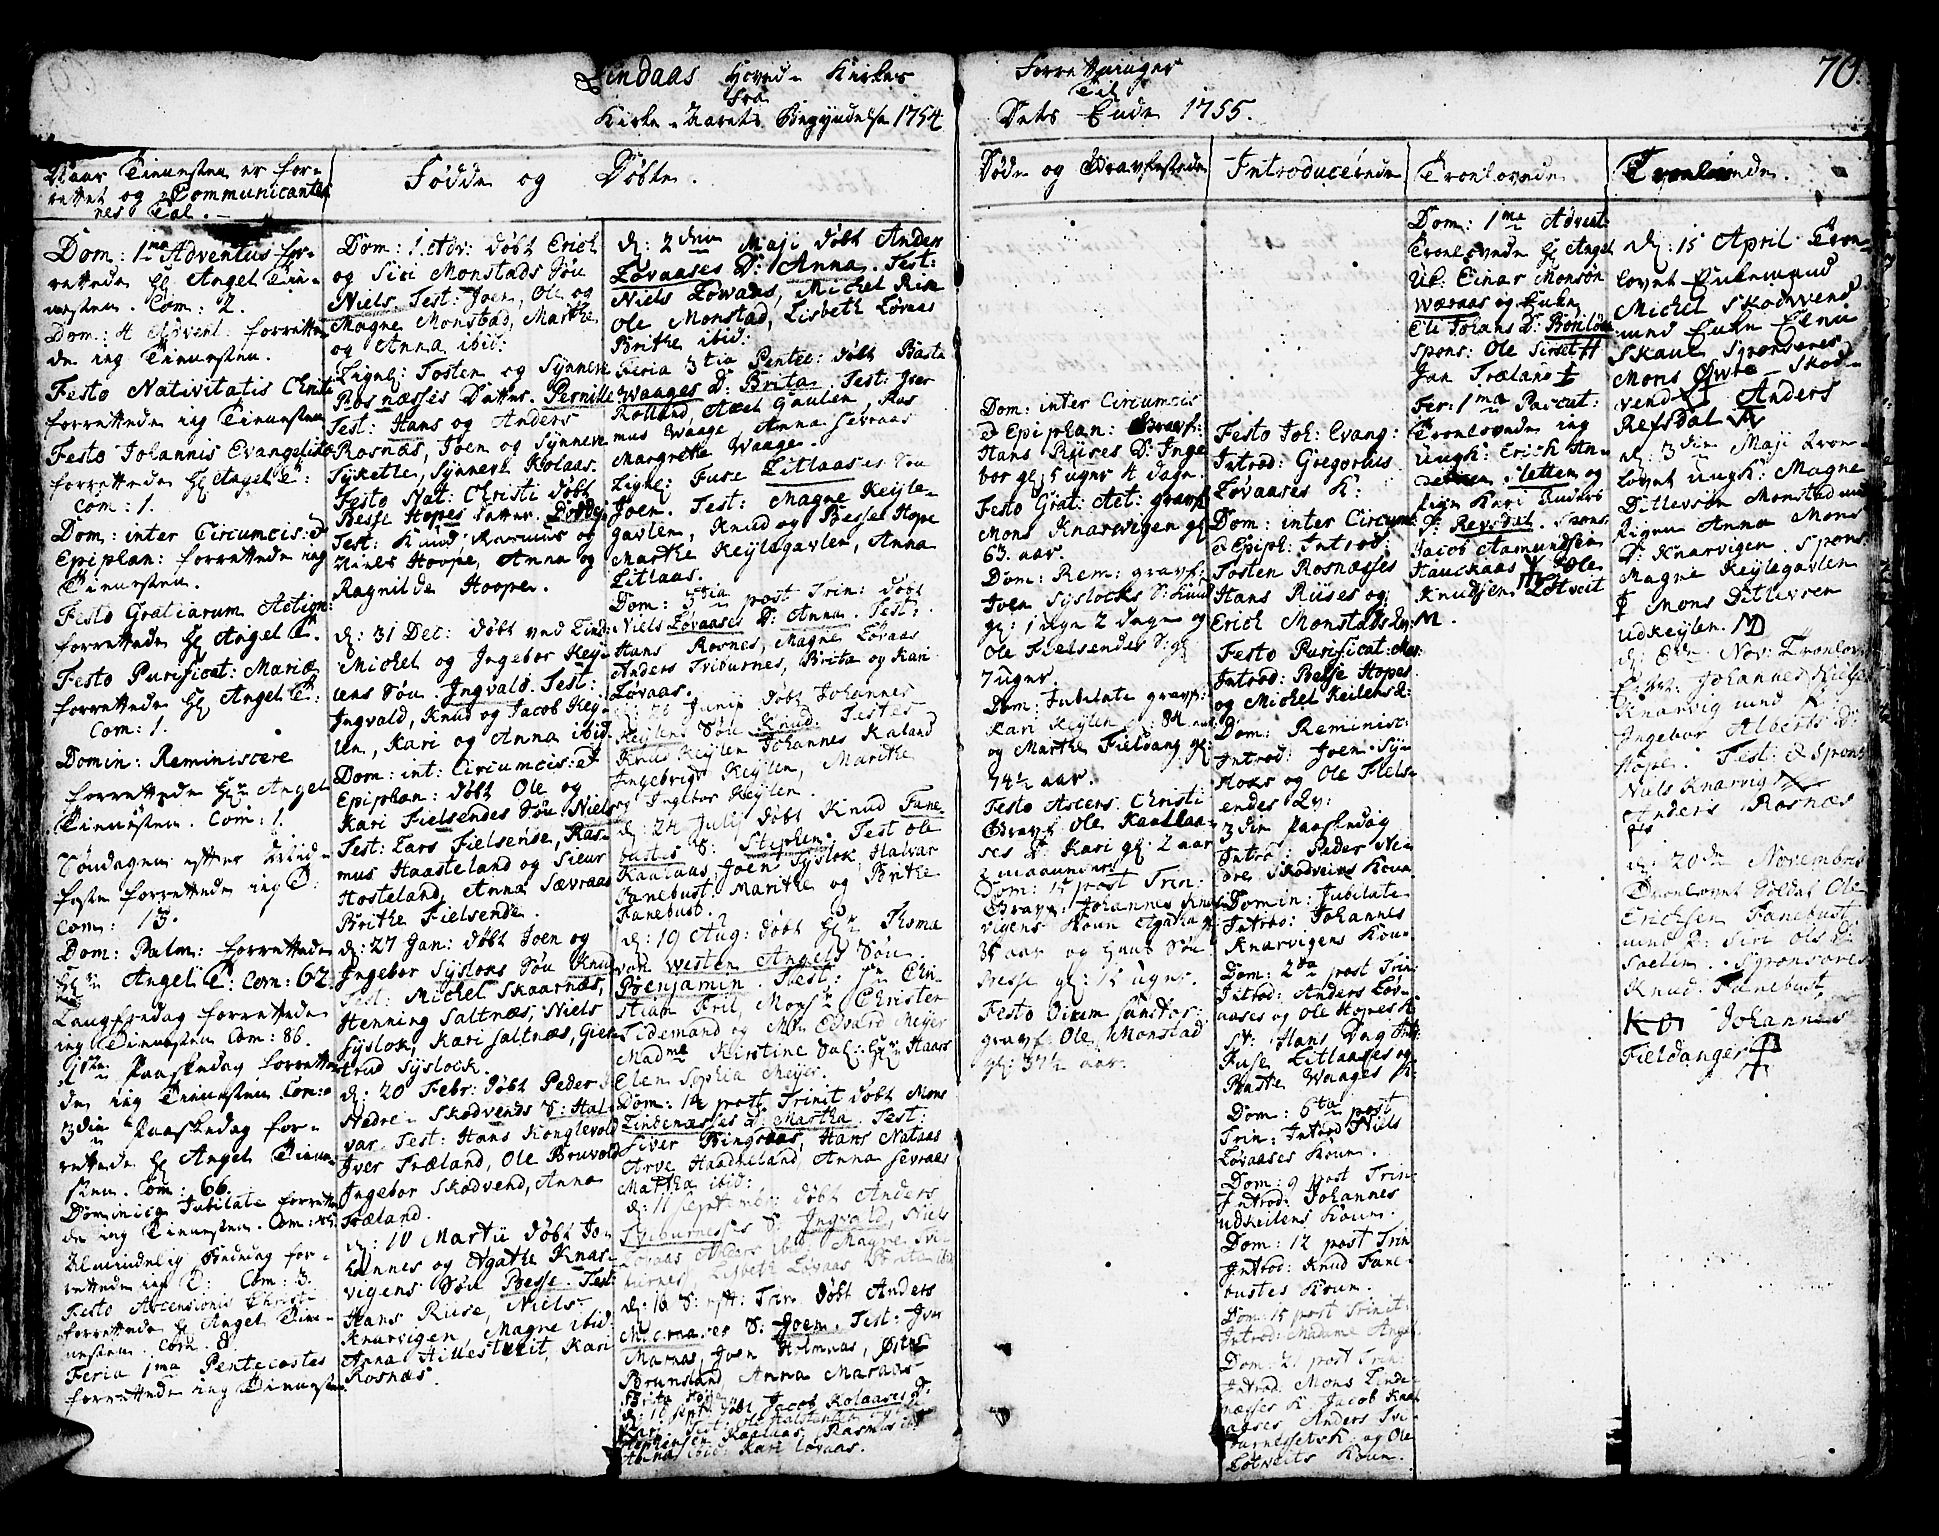 Lindaas Hoved Kirkes Forretninger 70.
fra Til
Kirke-Aarets Begyndelse 1754 Dets Ende 1755.
Naar Tienesten er for-
rettet og Communicanter
nes Tal.
Dom: 1ma Adventus for-
rettede Hr Angel Tie-
nesten. Com: 2.
Dom: 4 Advent. forrette
de ieg Tienesten.
Festo Nativitatis Christi
forrettede ieg Tienesten
Festo Johannis Evangelistæ
forrettede Hr Angel T:
Com: 1.
Dom: inter Circumcis: &
Epiphan: forrettede ieg
Tienesten.
Festo Gratiarum Action:
forrettede Hr Angel T.
Festo Purificat: Mariæ
forrettede Hr Angel T:
Com: 1.
Domin: Reminiscere
forrettede Hr Angel
Tienesten. Com: 1.
Tonsdagen efter Mid-
faste forrettede ieg T:
Com: 13.
Dom: Palm: forrettede
Hr Angel T: Com: 62.
Langfredag forrettede
ieg Tienesten Com: 86.
Paaskedag forrette
de ieg Tienesten Com:
3die Paaskedag for-
rettede Hr Angel Tiene-
sten. Com: 66.
Dominica Jubilate forrette
de ieg Tienesten. Com:
Almindelig Bededag for-
rettede ieg T: Com: 3.
Festo Ascensionis Christi
forrettede Hr Angel Tiene-
nesten. Com: 8.
Feria 1ma Pentecostes
forrettede ieg Tienesten
Fødde og Døbte.
Dom: 1. Adv: døbt Erich
og Siri Monstads Søn
Niels. Test: Joen, Ole og
Magne Monstad, Marthe
og Anna ibid:
Ligne: Tosten og Synneve
Rosnæsses Datter. Pernille
Test: Hans og Anders
Rosnæs, Joen og Synneve
Syketle, Synneve Kolaas.
Festo Nat: Christi døbt
Besse Hopes Datter.
Test: Knud, Rasmus og
Niels Hoope, Anna og
Ragnilde Hoope.
d: 31 Dec: døbt ved Lind:
Michel og Ingebor Key-
lens Søn. Ingvald. Test:
Ingvald, Knud og Jacob Key-
len, Kari og Anna ibid.
Dom: int: Circumcis: &
Epiphan: døbt Ole og
Kari Fielsendes Søn: Niels
Test: Lars Fielsense, Ras-
mus Haasteland og Sieur
Hosteland, Anna Sævraas
Brithe Fielsende.
d: 27 Jan: døbt Joen og
Ingebor Syslous Søn Knud
Test: Michel Skaarnæs,
Henning Saltnæs, Niels
Syslok, Kari Saltnæs, Gier-
trud Syslock.
d: 20 Febr: døbt Peder
Nedre-Skodvends S: Hal-
var. Test: Hans Konglevold
Iver Træland, Ole Bruvold
Ingebor Skodvend, Anna
Træland.
d: 10 Martii døbt Jo-
hannes og Agathe Knar-
vigens Søn Besse. Test:
Hans Riise, Niels
Knarvigen, Magne ibid:
Anna Hillestveit, Kari
Rosnæs.
d: 2den Maji døbt Anders
Løvaases D: Anna. Test:
Niels Løvaas, Michel Riise
Ole Monstad, Lisbeth Løvaas
Brithe ibid:
Feria 3tia Pentec: døbt Baste
Waages D: Brita. Test: Iver
Rolland, Axel Gaulen, Ras
mus Waage, Anna Sevraas
Margrethe Waage.
Ligne: Fuse Litlaases Søn
Joen. Test: Magne Keyle-
gavlen, Knud og Besse Hope
Marthe Keylegavlen, Anna
Litlaas.
Dom: 3tia post Trin: døbt
Niels Løvaases D: Anna. Test:
Hans Rosnes, Magne Løvaas
Anders Triburnes, Brita og Kari
Løvaas.
Junii døbt Johannes
Keylens Søn Knud. Testes
Knud Keylen Johannes Kaland
Ingebrigt Keylen, Marithe
og Ingebor Keylen.
d: 24 Julij døbt Knud Fane-
bustes S: Stephen. Test Ole
Kaalaas, Joen Syslok, Halvar
Fanebust, Marithe og Brithe
Fanebust.
d: 19 Aug: døbt Hr Thoma
von Westen Angels Søn
Benjamin. Test: Hr Chri-
stian Friis, Monsr Christen
Tidemand og Mr Edvard Meyer
Madme Kirstine Sal: Hr Haars
Elen Sophia Meyer.
Dom: 14 post Trinit døbt Mons
Lindenæsses D. Martha. Test:
Siver Bingstaas, Hans Nataas
Arve Haadheland, Anna Sevraas
Martha ibid:
d: 11 September døbt Anders
Triburnesses S: Ingvald. Niels
Løvaas Anders ibid Magne Tri-
burnes, Lisbeth Løvaas Brita ibid
d: 16 S: eft: Trin. døbt Anders
S: Joen. Test: Iver
Marnas, Joen Holmnas,
Brunsland Anna Maraas
døbt Jacob Kolaases D.
Kaalaas, Rasmus ibid
Anna ibid: Kari Løvaas.
Døde og Gravfestede
Dom: inter Circumcis
& Epiphan: Gravf:
Hans Riises D: Inge
bor gl: 5 uger 4 dage.
Festo Grat: Act: gravf:
Mons Knarvigen gl:
63. aar.
Dom: Rem: gravf:
Joen Syslocks S: Knud
gl: 1 uge 2 dage og
Ole Fielsendes S: gl:
7 uger.
Dom: Jubilate gravf:
Kari Keylen gl: 84 aar
og Marthe Fieldang gl:
74½ aar.
Festo Ascens: Christi
Gravf: Ole Kaallaa-
ses D: Kari gl: 2 aar
2 maaneder
Dom: 15 post Trin:
Gravf: Johannes Knar-
vigens Koun Agatha gl:
35 aar og hans Søn
Besse gl: 15 uger.
Festo Omnium Sanctor:
gravf: Ole Monstad
gl: 37½ aar.
Introducerede
Festo Joh: Evang:
Introd: Gregorius
Løvaases K:
Dom: inter Circumc:
& Epiph: Introd:
Tosten Rosnæsses
Hans Riises og
Erich Monstads Qv:
Festo Purificat: Mar:
Introd: Besse Hopes
og Michel Keilens Q:
Dom: Reminisc:
Introd: Joen Sy-
sloks og Ole Fiels-
endes Qv:
3die Paaskedag
Introd: Peder Ne-
dre Skodveins Koun
Domin: Jubilate
Introd: Johannes
Knarvigens Kou-
Dom: 2da post Trin:
Introd: Anders Løv-
aases og Ole Hopes K
St: Hans Dag Intr:
Fuse Litlaases og
Baste Waages K:
Dom: 6ta post
Trin: Introd Niels
Løvaases Koun.
Dom: 9 post Trin:
Introd: Johannes
udkeilens Koun.
Dom: 12 post Trin
Introd: Knud Fane-
bustes Koun.
Dom: 15 post Trinit:
Introd: Madame Angel.
Dom: 21 post Trin:
Introd. Mons Linde-
næsses K. Jacob Kaal
aases, Anders Tri-
burnesses K. og Ole
Lotveits Koun.
Troelovede
Dom: 1ma Advent:
Troelovede Hr Angel
Uk: Einar Monsøn
Wæraas og Enke
Eli Johans D: Børiløen
Spons: Ole Sirset H
Jan Træland
Fer: 1ma Pascat:
Troelovede ieg
Ungk: Erich An-
Letten og
Pigen Kari Anders
D: Revsdal. Spons
Jacob Aamundsen
Hauckaas Ole
Knudsen Lotveit
M.
Troelovede.
d: 15 April Troe-
lovet Enkemand
Michel Skodvend
med Enke Elsni
Skaue Sponsores
Mons Øwre-Skod-
vend Anders
Refsdal
d: 3die Maji Troe-
lovet ungk: Magne
Ditlevsøn Monstad med
Pigen Anna Mons
D: Knarvigen. Spons:
Magne Keylegavlen
Mons Ditlevsen
udkeylen. MD
d: 8de Nov: Troelovet
Johannes Nielsen
Knarvig med P:
Ingebor Alberts D:
Hope. Test: & Spons
Niels Knarvig
Anders Rosnæs
d: 20de Novembris
Troelovet Soldat Ole
Erichsen Fanebust
med P: Siri Ols D:
Soelem. Sponsores
Knud Fanebust
Johannes
Fieldanger